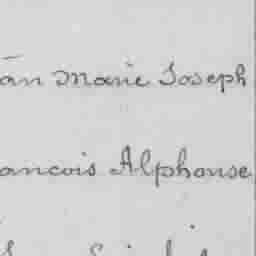 an Marie Joseph
ancois Alphonse